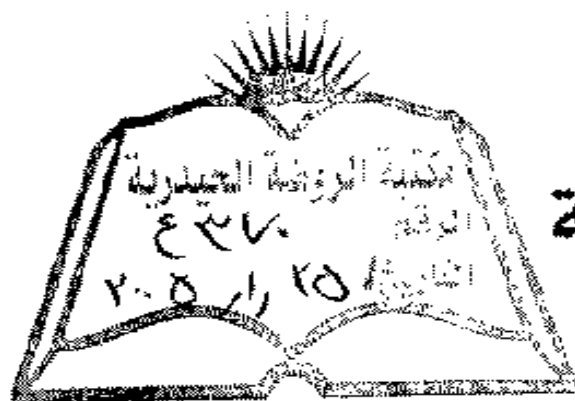 مكتبة الروضة الحيدرية
الرقم ٤٣٧٠
التاريخ ٢٥ / ١ / ٢٠٠٥